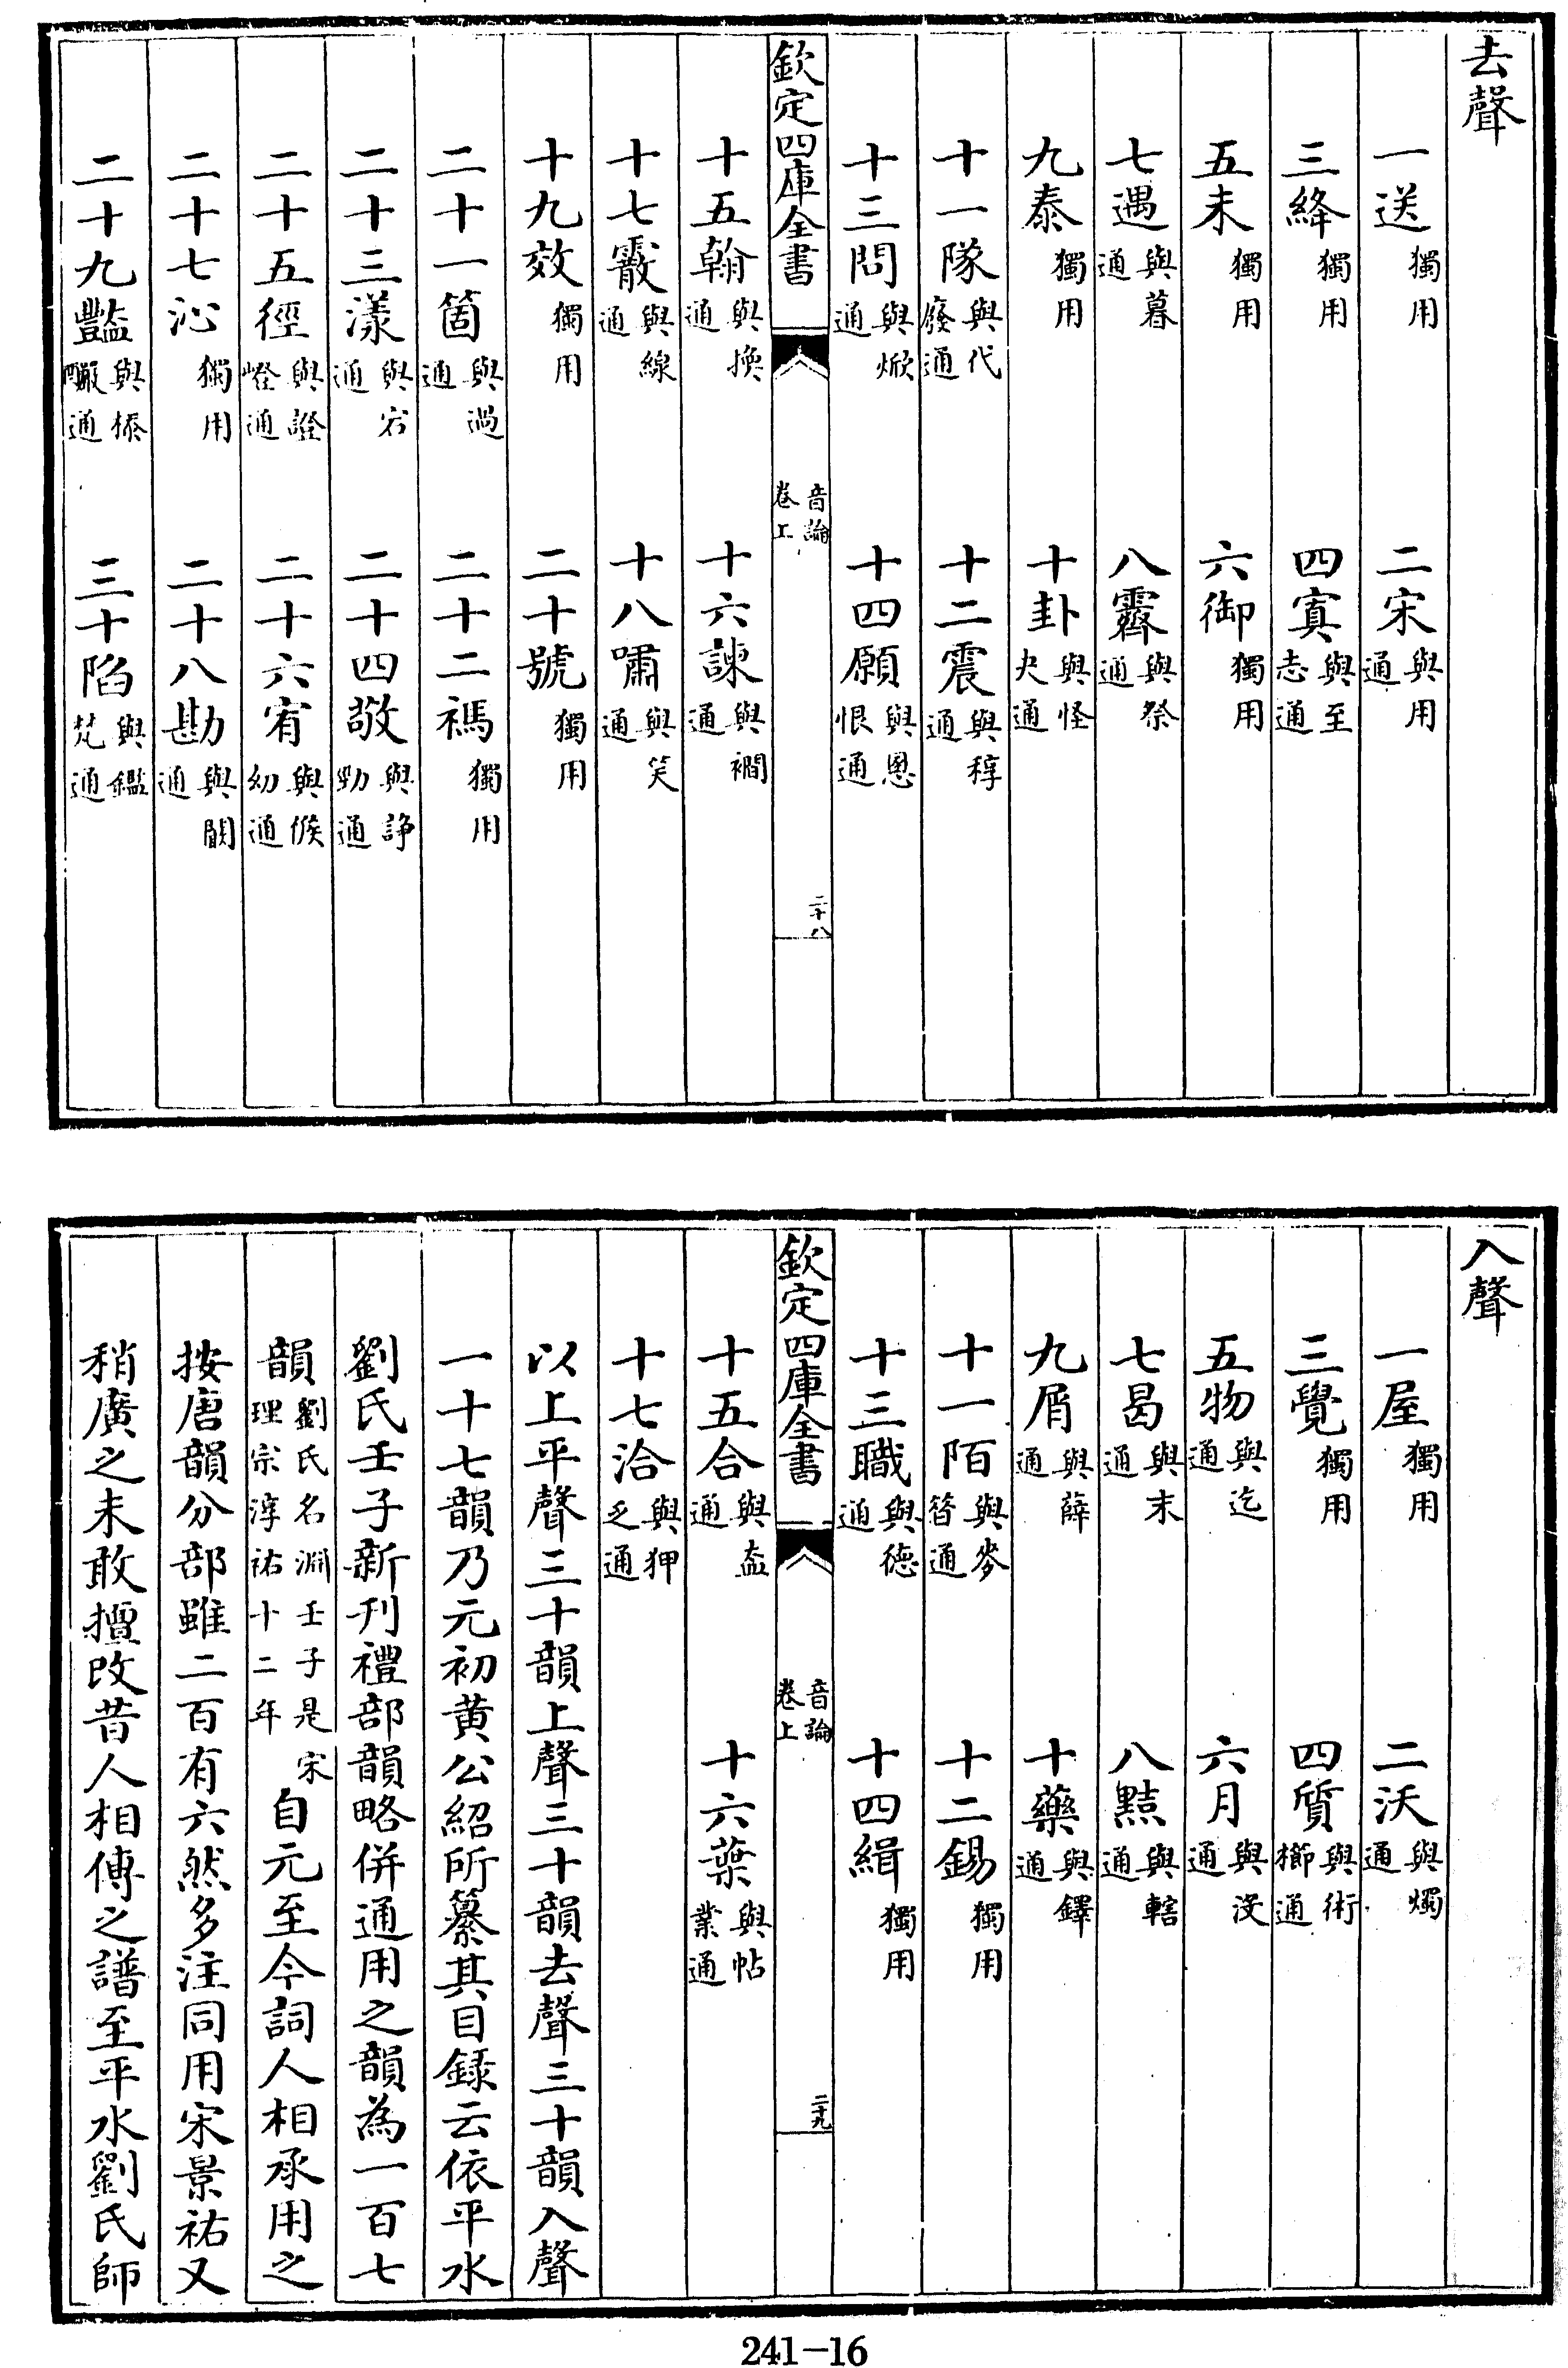 去聲
一送獨用 二宋與用通
三絳獨用 四寘與至志通
五未獨用 六御獨用
七遇與暮通 八霽與祭通
九泰獨用 十卦與怪夬通
十一隊與代廢通 十二震與稕通
十三問與焮通 十四願與慁恨通
欽定四庫全書 音論卷上 二十八
十五翰與換通 十六諫與襉通
十七霰與線通 十八嘯與笑通
十九效獨用 二十號獨用
二十一箇與過通 二十二禡獨用
二十三漾與宕通 二十四敬與諍勁通
二十五徑與證嶝通 二十六宥與候幼通
二十七沁獨用 二十八勘與闞通
二十九豔與㮇釅通 三十陷與鑑梵通
入聲
一屋獨用 二沃與燭通
三覺獨用 四質與術櫛通
五物與迄通 六月與沒通
七曷與末通 八黠與轄通
九屑與薛通 十藥與鐸通
十一陌與麥昔通 十二錫獨用
十三職與德通 十四緝獨用
欽定四庫全書 音論卷上 二十九
十五合與盍通 十六葉與帖業通
十七洽與狎乏通
以上平聲三十韻上聲三十韻去聲三十韻入聲
一十七韻乃元初黃公紹所纂其目錄云依平水
劉氏壬子新刊禮部韻略併通用之韻為一百七
韻劉氏名淵壬子是宋理宗淳祐十二年自元至今詞人相承用之
按唐韻分部雖二百有六然多注同用宋景祐又
稍廣之未敢擅改昔人相傳之譜至平水劉氏師
241-16